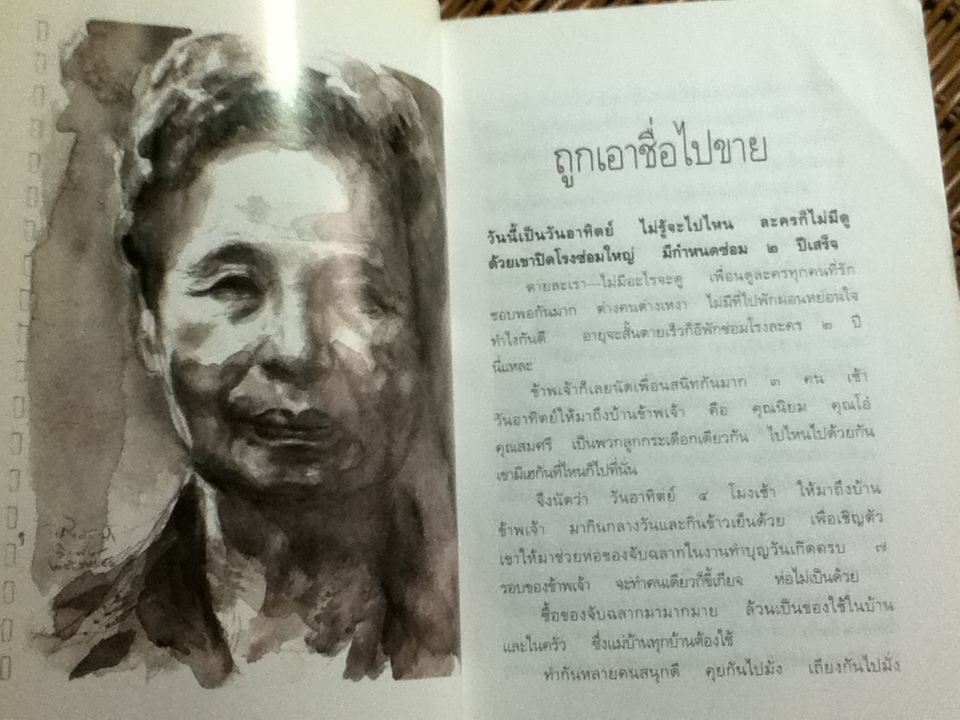 ถูกเอาชื่อไปขาย
วันนี้เป็นวันอาทิตย์ ไม่รู้จะไปไหน ละครก็ไม่มีดู
ด้วยเขาปิดโรงซ่อมใหญ่ มีกำหนดซ่อม ๒ ปีเสร็จ
ตายละเรา—ไม่มีอะไรจะดู เพื่อนดูละครทุกคนที่รัก
ชอบพอกันมาก ต่างคนต่างเหงา ไม่มีที่ไปพักผ่อนหย่อนใจ
ทำไงกันดี อายุจะสั้นตายเร็วก็อีพักซ่อมโรงละคร ๒ ปี
นี่แหละ
ข้าพเจ้าก็เลยนัดเพื่อนสนิทกันมาก ๓ คน เช้า
วันอาทิตย์ให้มาถึงบ้านข้าพเจ้า คือ คุณนิยม คุณโอ๋
คุณสมศรี เป็นพวกลูกกระเดือกเดียวกัน ไปไหนไปด้วยกัน
เขามีเฮกันที่ไหนก็ไปที่นั่น
จึงนัดว่า วันอาทิตย์ ๔ โมงเช้า ให้มาถึงบ้าน
ข้าพเจ้า มากินกลางวันและกินข้าวเย็นด้วย เพื่อเชิญตัว
เขาให้มาช่วยห่อของจับฉลากในงานทำบุญวันเกิดครบ ๗
รอบของข้าพเจ้า จะทำคนเดียวก็ขี้เกียจ ห่อไม่เป็นด้วย
ซื้อของจับฉลากมามากมาย ล้วนเป็นของใช้ในบ้าน
และในครัว ซึ่งแม่บ้านทุกบ้านต้องใช้
ทำกันหลายคนสนุกดี คุยกันไปมั่ง เถียงกันไปมั่ง